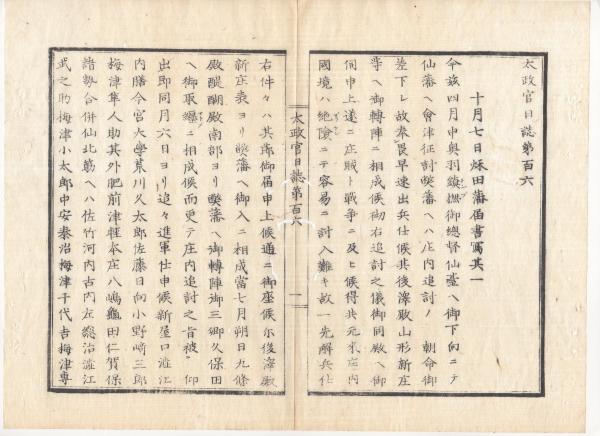 太政官日誌第百六
十月七日秌田藩届書寫其一
今玆四月中奥羽鎮撫御總督仙臺ヘ御下向ニテ
仙藩ヘ會津征討弊藩ヘハ庄内追討ノ 朝命御
差下シ故奉畏早速出兵仕候其後澤殿山形新庄
等ヘ御轉陣ニ相成候砌右追討之儀御同殿ヘ御
伺申上遂ニ庄賊ト戰爭ニ及ヒ候得共元来庄内
國境ハ絶險ニテ容易ニ討入難キ故一先解兵仕
太政官日誌第百六
一
右件々ハ其御届申上候通ニ御座候尓後澤殿
新庄表ヨリ弊藩ヘ御入ニ相成當七月朔日九條
殿醍醐殿南部ヨリ弊藩ヘ御轉陣御三卿久保田
ヘ御取纒ニ相成候而更ニ庄内追討之旨被 仰
出即同月六日ヨリ追々進軍仕申候新屋口澁江
内膳今宮大學荒川久太郎佐藤日向小野﨑三郎
梅津隼人助其外肥前津軽本庄八嶋龜田仁賀保
諸勢合併仙北筋ヘハ佐竹河内古内左惣治澁江
武之助梅津小太郎中安泰治梅津千代吉梅津專